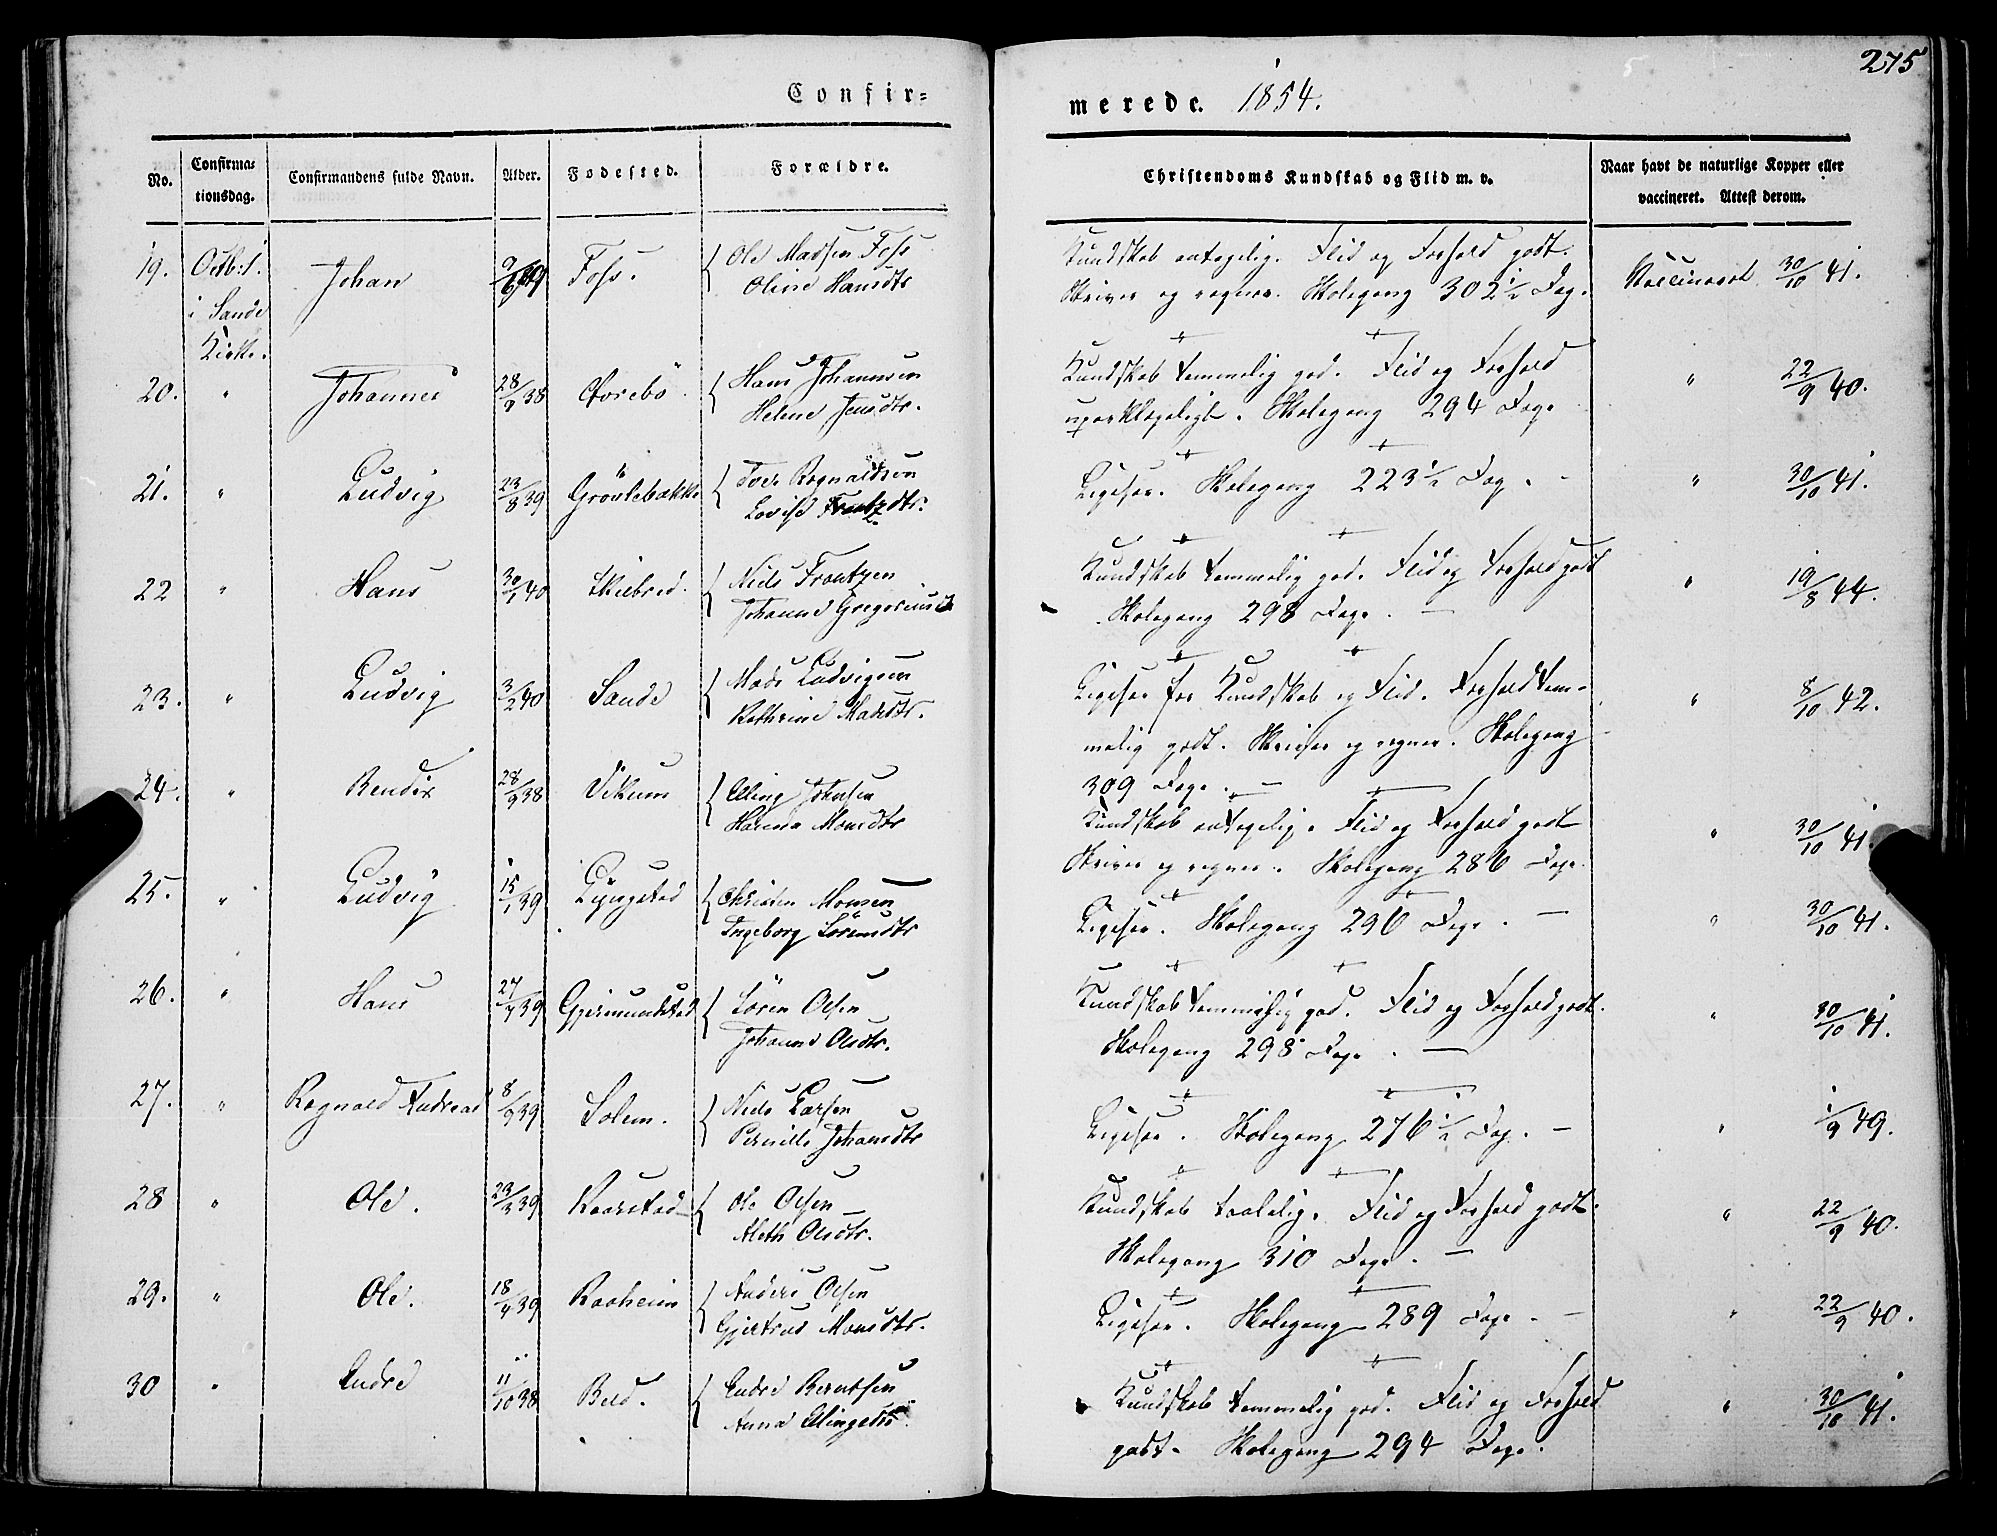 275
Confir=
merede. 1854.
No.
Confirma=
tionsdag.
Confirmandens fulde Navn.
Alder.
Fødested.
Forældre.
Christendoms Kundskab og Flid m. v.
Naar havt de naturlige Kopper eller
vaccineret. Attest derom.
19. Octb: 1. Johan Foss. Ole Madsen Foss
i Sande Oline Hansdtr
Kirke.
Kundskab antagelig. Flid og Forhold godt.
Skriver og regner. Skolegang 302 1/2 Dag. Vaccineret 30/10 41.
20. " Johannes 28/9 38 Hans Johannsen
Helene Jensdtr.
Kundskab temmelig god. Flid og Forhold
upaaklageligt. Skolegang 294 Dage " 22/9 40.
21. " Ludvig 23/8 39 Grövlebakke Iver Rognaldsen
Lovise Frantzdtr.
Ligesaa. Skolegang 223 1/2 Dag. - " 30/10 41.
22 " Hans 30/1 40 Skilbred. Niels Frantzen
Johanne Gregoriusd
Kundskab temmelig god. Flid og Forhold godt
Skolegang 298 Dage. - " 19/8 44.
23. " Ludvig 3/2 40 Sande Mads Ludvigsen
Kathrine Madsdtr.
Ligesaa for Kundskab og Flid. Forhold tem-
melig godt. Skriver og regner. Skolegang
309 Dage. - " 8/10 42.
24. " Bendix 28/9 38 Vikum Elling Johnsen
Hanna Monsdtr
Kundskab antagelig. Flid og Forhold godt
Skriver og regner. Skolegang 286 Dage. " 30/10 41
25. " Ludvig 15/1 39 Lyngstad Christen Monsen
Ingeborg Sörensdtr
Ligesaa. Skolegang 296 Dage. - " 30/10 41.
26. " Hans 27/4 39 Gjermundstad Sören Olsen
Johanne Olsdtr.
Kundskab temmelig god. Flid og Forhold godt.
Skolegang 298 Dage. - " 30/10 41.
27. " Rognald Andreas 8/9 39 Solem. Niels Larsen
Pernille Johansdtr
Ligesaa. Skolegang 276 1/2 Dag. - " 1/9 49.
28 " Ole. 23/3 39 Ole Olsen
Aleth Olsdtr.
Kundskab taalelig. Flid og Forhold godt.
Skolegang 310 Dage. - " 22/9 40.
29. " Ole. 18/4 39 Raaheim Anders Olsen
Gjertrud Monsdtr.
Ligesaa. Skolegang 289 Dage. - " 22/9 40.
30 " Endre 11/10 38 Beld. Endre Berntsen
Anna Ellingsdtr.
Kundskab temmelig god. Flid og Forhold
godt. Skolegang 294 Dage. " 30/10 41.